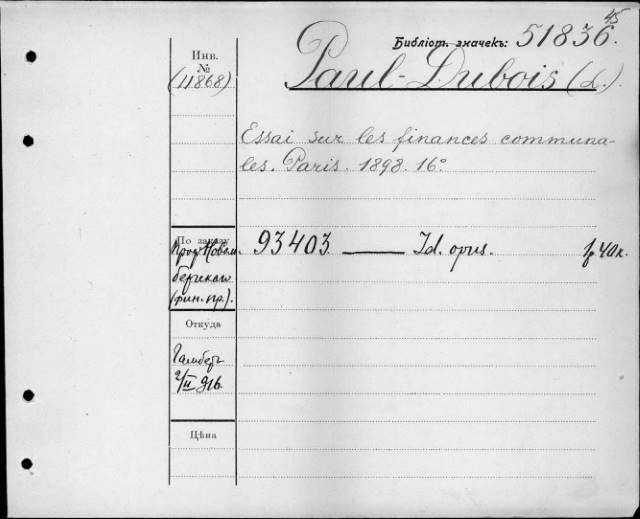 45
Библіот. значекъ: 51836.
Инв.
№
(11868)
Paul-Dubois (L.).
Essai sur les finances communa-
les. Paris. 1898. 16°
По заказу
Проф. Новом-
бергскаго
(фин. пр.).
93403 — Id. opus. 1р 40к.
Откуда
2/II 916.
Цѣна